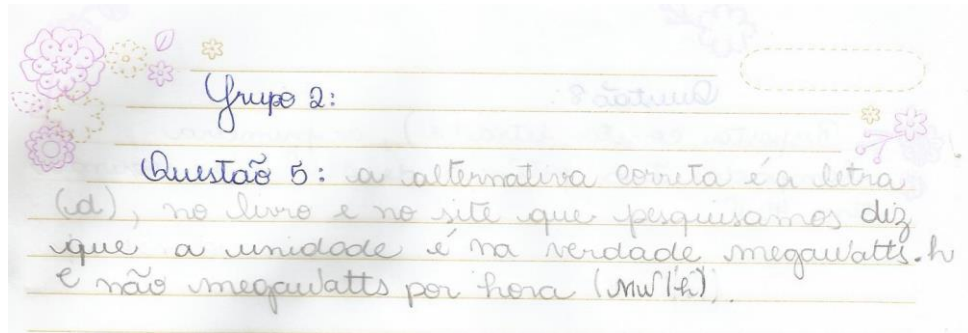 Grupo 2:
Questão 5: a alternativa correta é a letra
(d), no livro e no site que pesquisamos diz
que a unidade é na verdade megawatts.h
e não megawatts por hora (MW/h).